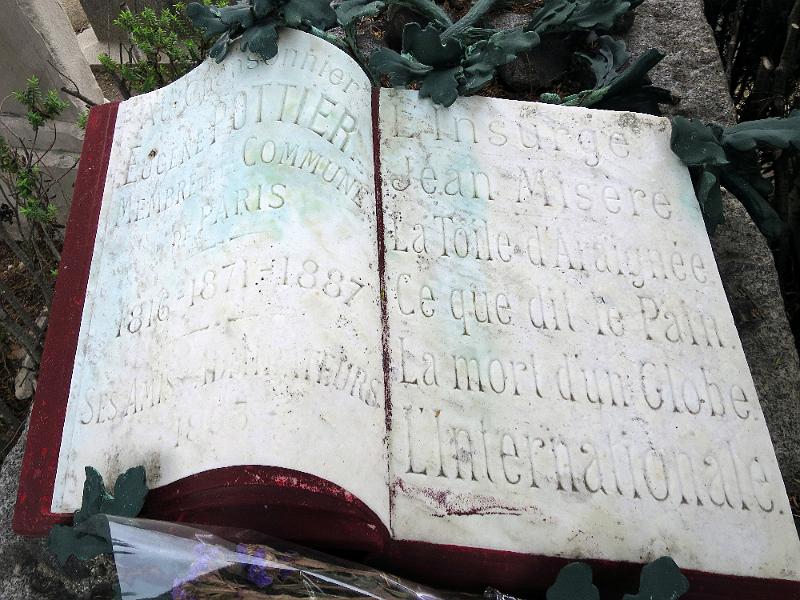 Au Chansonnier
EUGÈNE POTTIER
MEMBRE DE LA COMMUNE
DE PARIS
1816-1871-1887
SES AMIS ADMIRATEURS
L'Insurgé
Jean Misère
La Toile d'Araignée
Ce que dit le Pain
La mort d'un Globe.
L'Internationale.